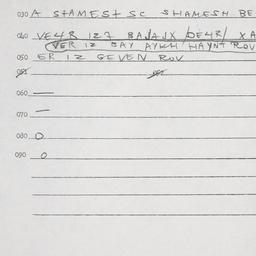 030 A STAMEST SC SHAMESH BE
040 VE4R 127 BAJAJX DE4R/ X A
VER 12 BAY AYKH HAYNT ROV
050 ER 12 GEVEN ROV
051
060 —
070 —
080 O
090 O